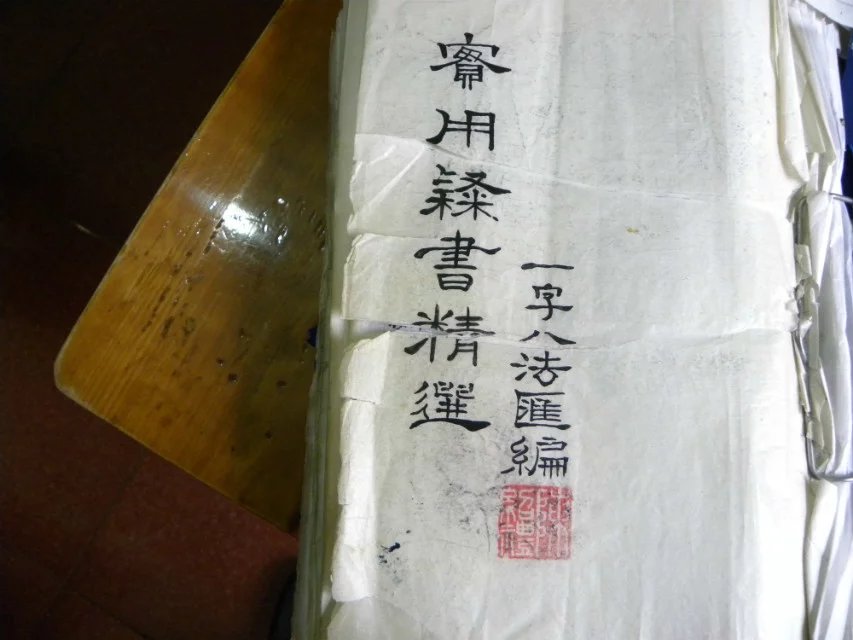 實用隸書精選
一字八法匯編